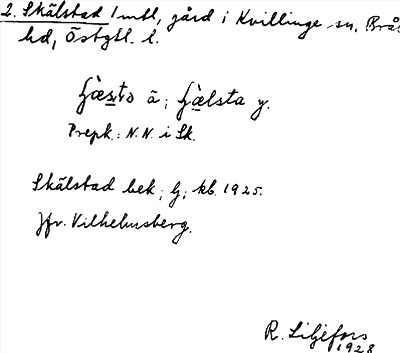 2. Skälstad 1 mtl, gård i Kvillinge sn, Brå-
hd, Östgtl. l.
ʃæ̀sto ä; ʃæ̀lsta y.
Prepk.: N.N. i Sk.
Skälstad bek; G; kb. 1925.
Jfr. Vilhelmsberg.
R. Liljefors
1928